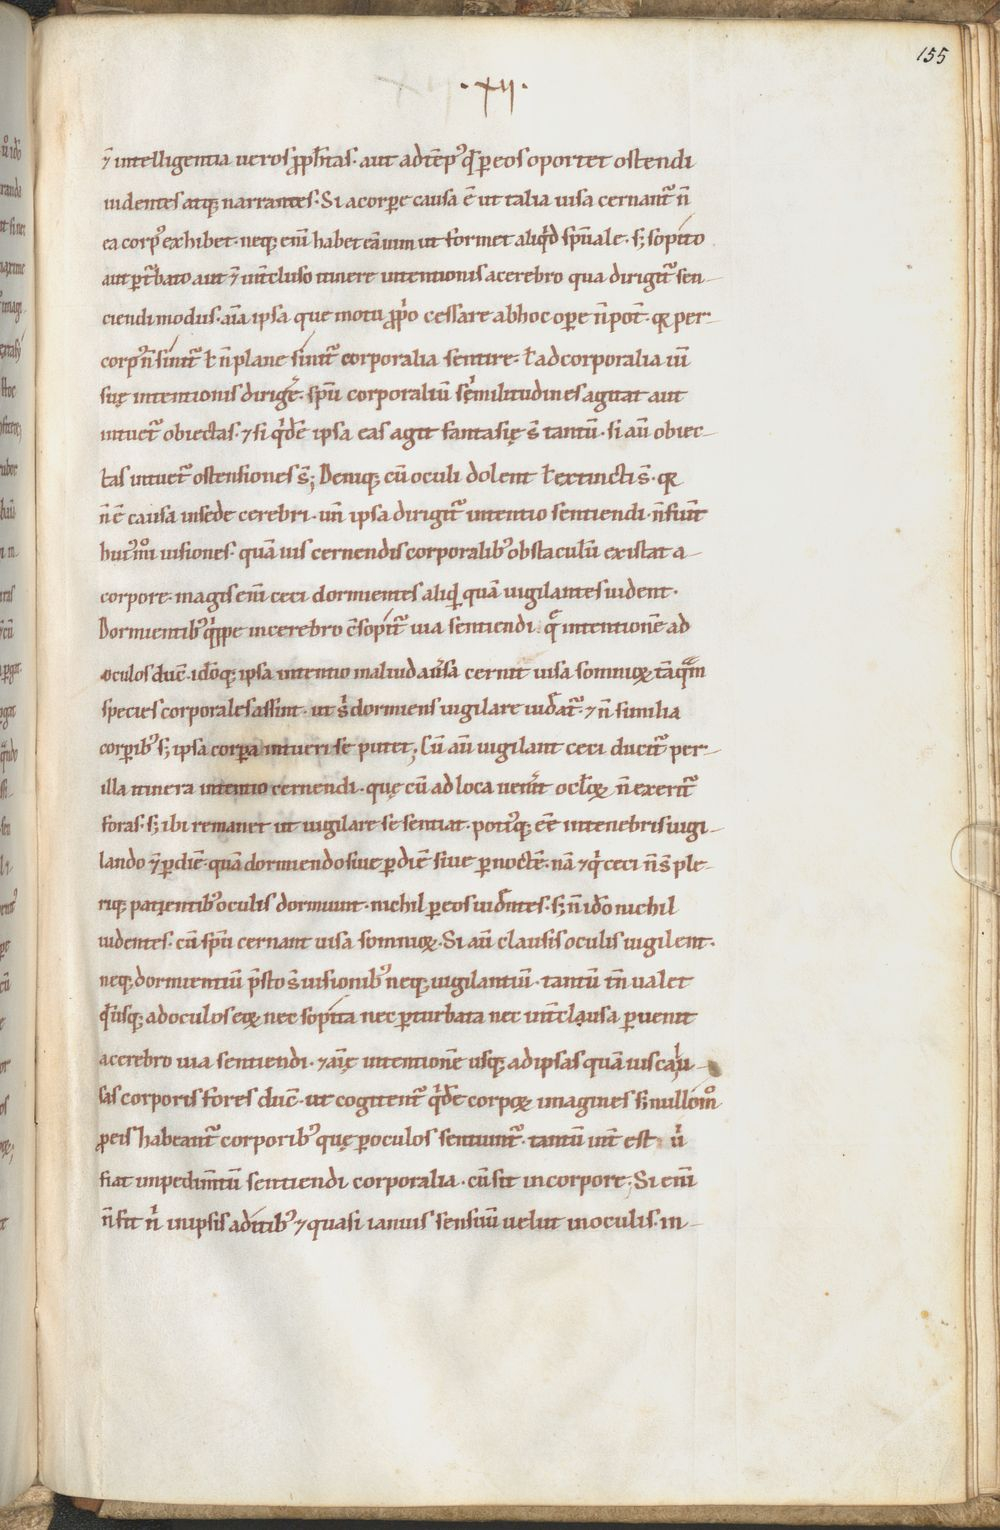 155
·XII·
⁊̄ intelligentia ueros ꝓph̄tas· aut ad tēpꝰ qd̄ ꝑ eos oportet ostendi
uidentes atq; narrantes· Si a corꝑe causa ē ut talia uisa cernant̄ n̄
ea corpꝰ exhibet· neq; eni͞m habet eā uim ut formet aliq͛d sp̄uale· s; sopito
aut ꝑt̄bato aut ⁊̄ int̄cluso itinere intentionis a cerebro qua dirigit̄ sen-
ciendi modus· aīa ipsa que motu ꝓp̄o cessare ab hoc oꝑe n̄ pot̄· qꝛ per-
corpꝰ n̄ sinit̄ ł n̄ plane sinit̄ corporalia sentire· ł ad corporalia uī
suę intentionis dirigē· sp̄u corporaliū similitudines agitat aut
intuet̄ obiectas· ⁊ si q͛dē ipsa eas agit fantasię s̄ tantū· si aū obiec-
tas intuet̄ ostensiones s̄; Deniq; cū oculi dolent ł extincti s̄· qꝛ
n̄ ē causa in sede cerebri· un̄ ipsa dirigit̄ intentio sentiendi· n̄ fiunt
huiꝰmͦi uisiones· quā uis cernendis corporalibꝰ obstaculū existat a-
corpore· magis eni͞m ceci dormientes aliqͥd quā uigilantes uident·
Dormientibꝰ q͛ppe in cerebro c̄sopit̄ uia sentiendi· qͣ intentionē ad
oculos ducͭ· idōq; ipsa intentio in aliud au͛sa cernit uisa somnioꝝ tāqͣm
species corporales assint· ut sͥ dormiens uigilare uideat̄· ⁊ n̄ similia
corꝑibꝰ s; ipsa corpora intueri se putet; Cū aū uigilant ceci ducit̄ per-
illa itinera intentio cernendi· quę cū ad loca uen͛it ocl̄oꝝ n̄ exerit̄
foras· s; ibi remanet ut uigilare se sentiat· potiꝰq; ēē in tenebris uigi-
lando ⁊̄ ꝑ diē· quā dormiendo siue ꝑ diē siue ꝑ noctē· nā ⁊ qͥ ceci n̄ s̄ ple-
riq; patientibꝰ oculis dormiunt· nichil ꝑ eos uidentes· s; n̄ idō nichil
uidentes· cū sp̄u cernant uisa somnioꝝ· Si aū clausis oculis uigilent·
neq; dormientiū p̄sto s̄ uisionibꝰ neq; uigilantiū· tantū tn̄ ualet
qͥ usq; ad oculos eoꝝ nec sopita nec ꝑturbata nec int̄clausa ꝑuenit
a cerebro uia sentiendi· ⁊ aīę intentionē usq; ad ipsas quā uis clau-
sas corporis fores ducͭ· ut cogitent̄ q͛dē corpoꝝ imagines s; nullo mͦ
ꝓ eis habeant̄ corporibꝰ quę ꝑ oculos sentiunt̄· tantū int̄ est uͥ
fiat impedimtū sentiendi corporalia· cū sit in corpore; Si eni͞m
n̄ fit nͥ in ipsis aditibꝰ ⁊ quasi ianuis sensuum uelut in oculis· in-